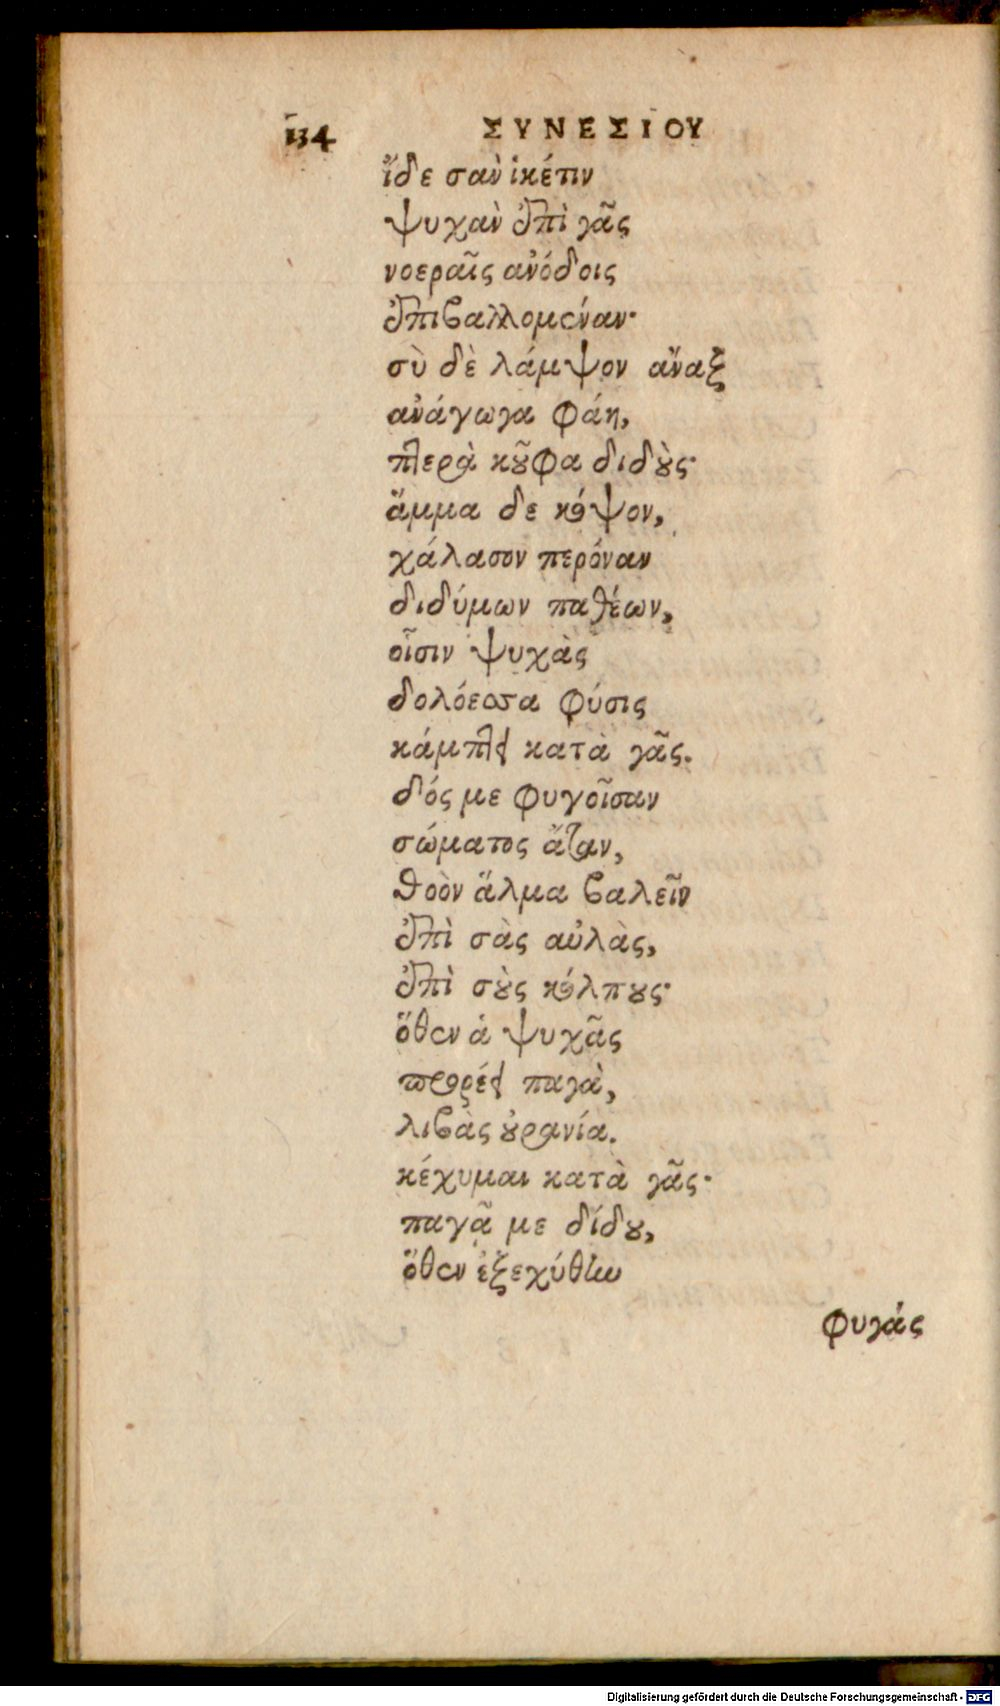 134 ΣΥΝΕΣΙΟΥ
ἴδε σαν ἱκέτιν
ψυχὰν ἐπὶ γᾶς
νοεραῖς ἀνόδοις
ἐπιβαλλομέναν·
σὺ δὲ λάμψον ἄναξ
ἀνάγωγα φάη,
πτερὰ κοῦφα διδούς·
ἅμμα δε κόψον,
χάλασον περόναν
διδύμων παθέων,
οἷσιν ψυχὰς
δολόεσσα φύσις
κάμπτει κατὰ γᾶς.
δός με φυγοῖσαν
σώματος ἄταν,
θοὸν ἅλμα βαλεῖν
ἐπὶ σὰς αὐλὰς,
ἐπὶ σοὺς κόλπους·
ὅθεν ἁ ψυχᾶς
προρέει παγὰ,
λιβὰς οὐρανία.
κέχυμαι κατὰ γᾶς·
παγᾷ με δίδου,
ὅθεν ἐξεχύθην
φυγάς
Digitalisierung gefördert durch die Deutsche Forschungsgemeinschaft - DFG